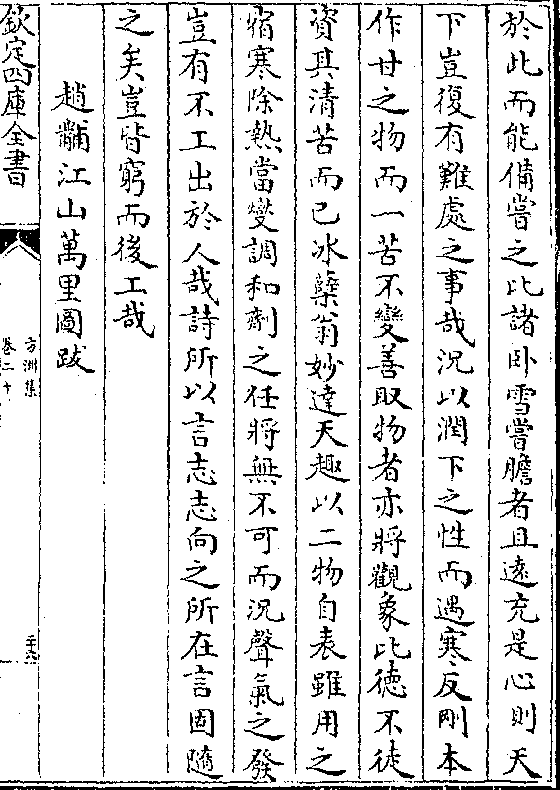 於此而能備嘗之比諸卧雪嘗膽者且遠充是心則天
下豈復有難處之事哉況以潤下之性而遇寒反剛本
作甘之物而一苦不變善取物者亦將觀象比德不徒
資其清苦而已冰蘗翁妙達天趣以二物自表雖用之
痟寒除熱當變調和劑之任將無不可而況聲氣之發
豈有不工出於人哉詩所以言志志向之所在言固隨
之矣豈皆窮而後工哉
趙黼江山萬里圖跋
欽定四庫全書
方洲集
卷二十